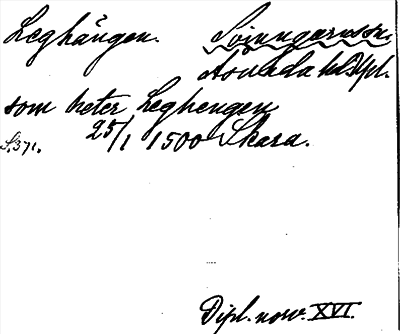 Leghängen. Svinngarns sn.
Åsunda hd. Upl.
som heter Leghengen
S. 371. 25/1 1500 Skara.
Dipl. norv. XVI.